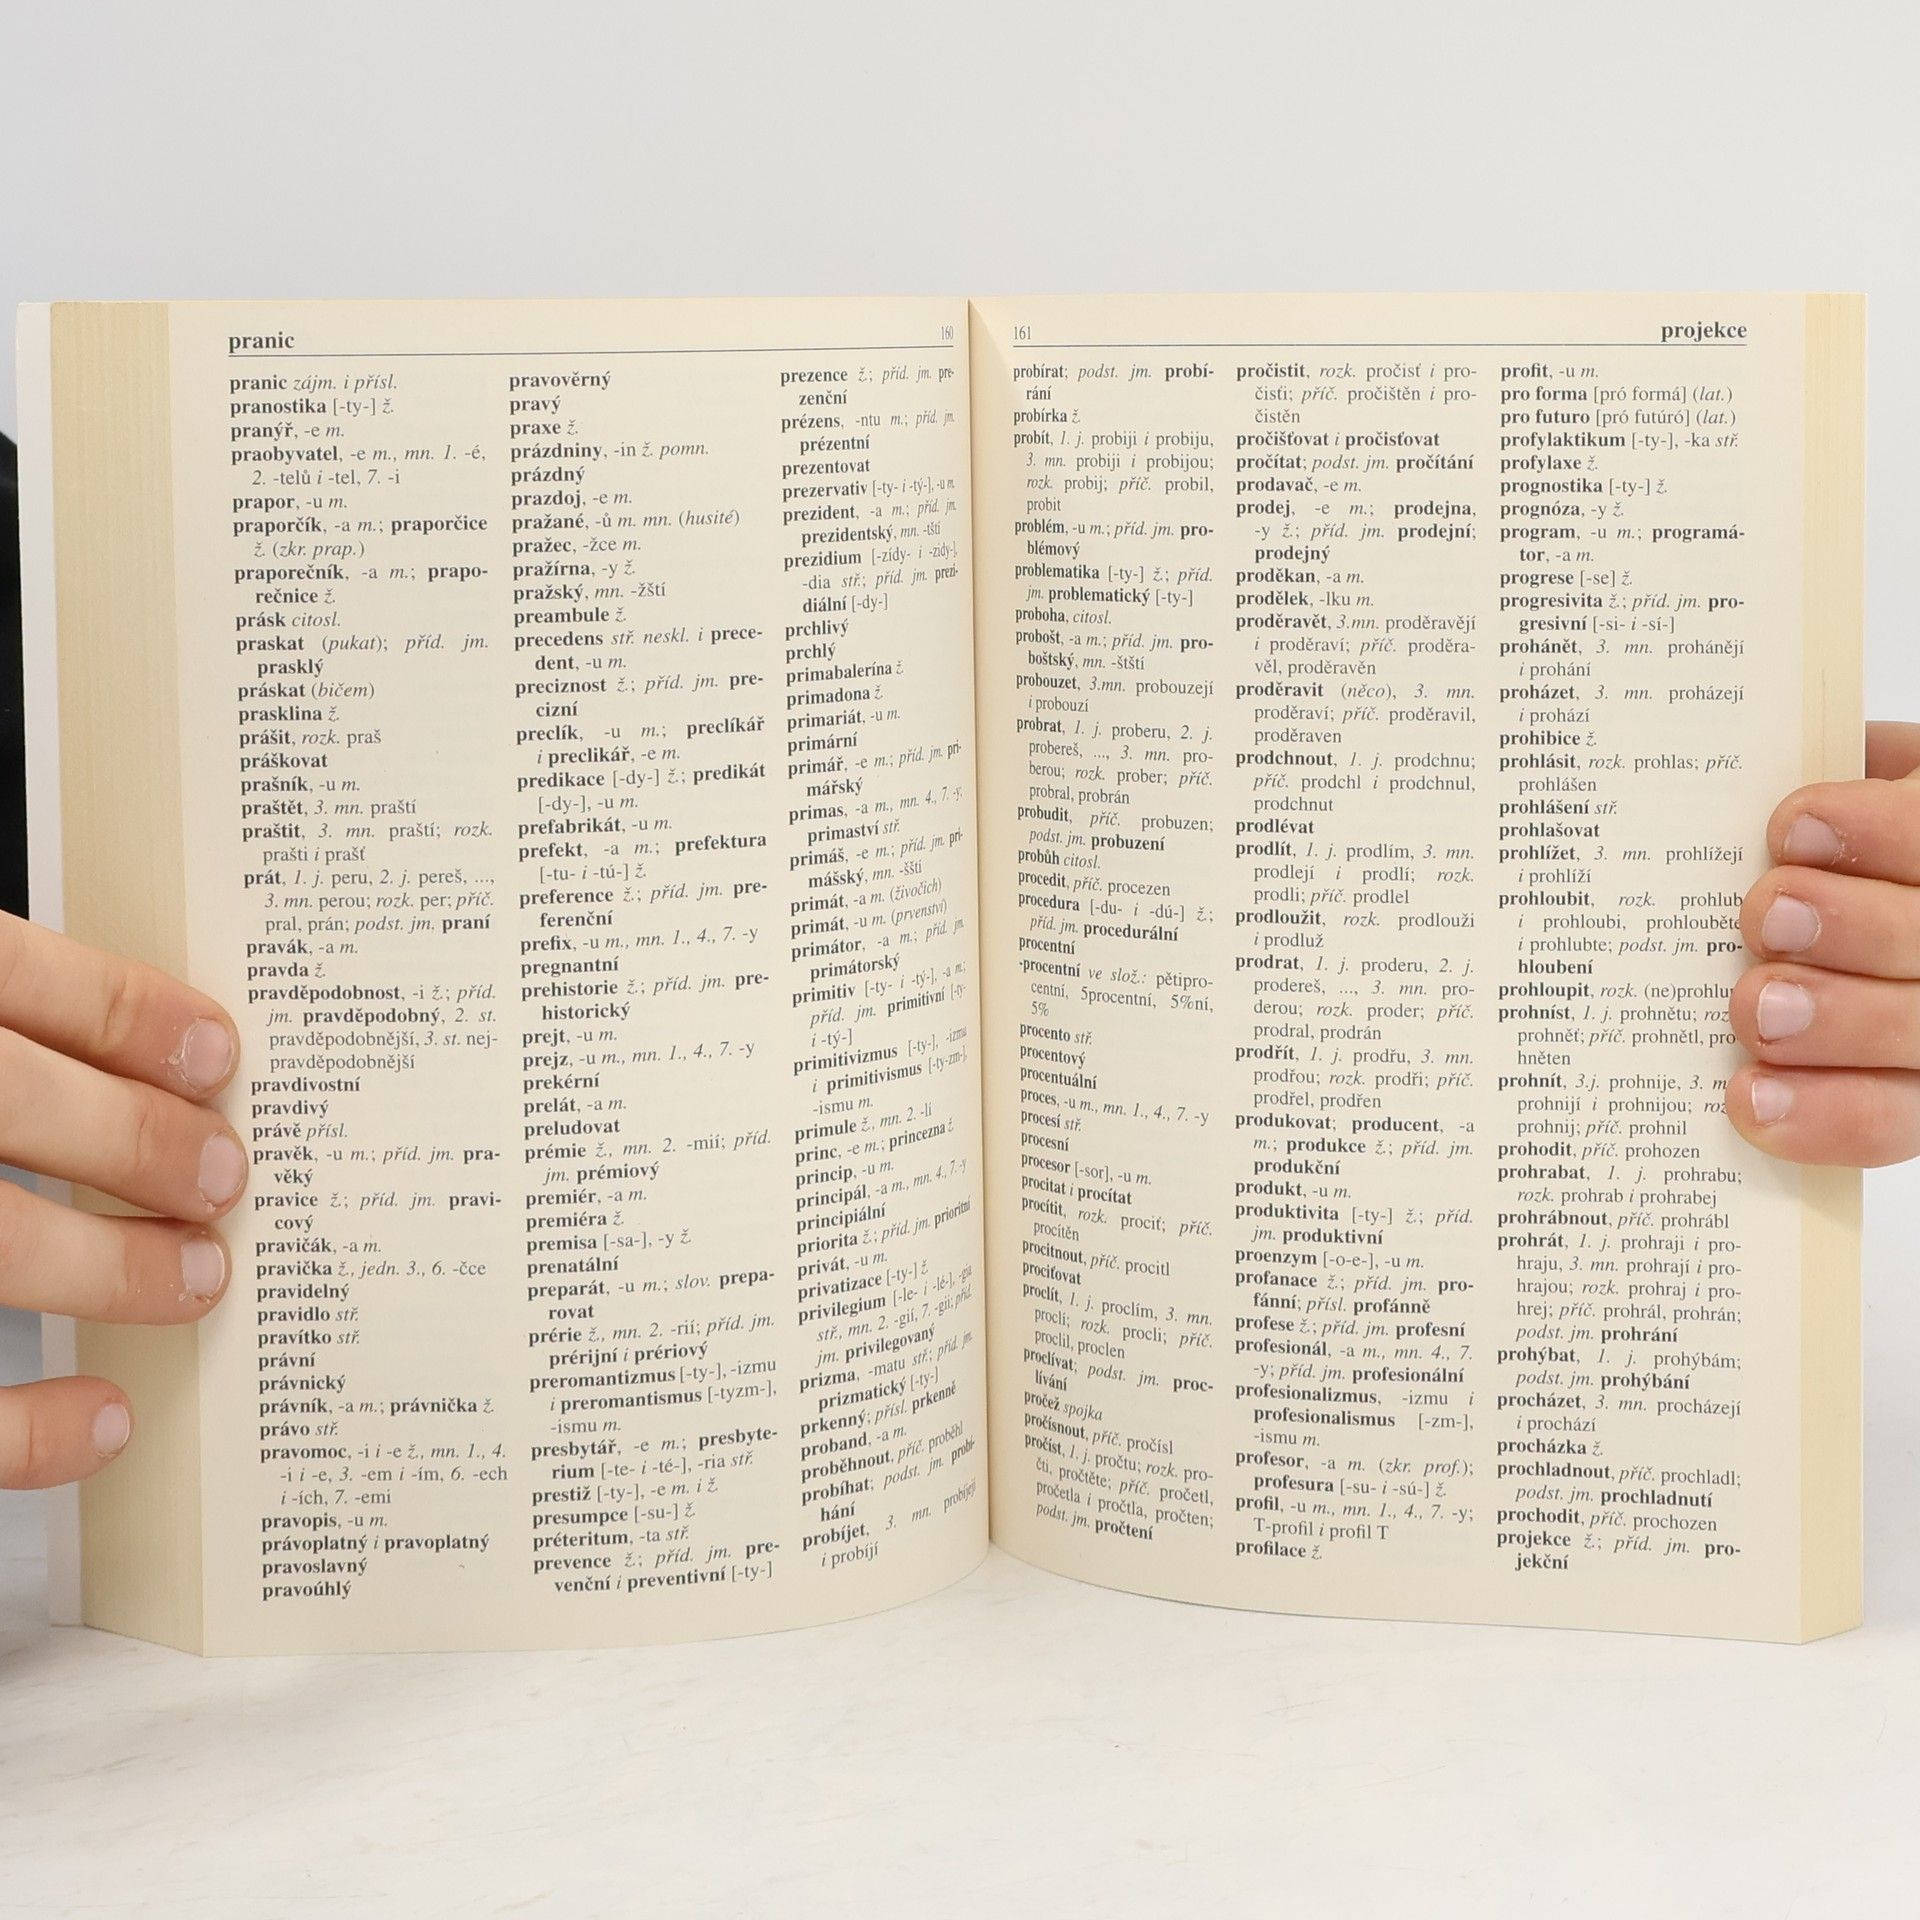 pranic
160
pranic zájm. i přísl.
pranostika [-ty-] ž.
pranýř, -e m.
praobyvatel, -e m., mn. 1. -é,
2. -telů i -tel, 7. -i
prapor, -u m.
praporčík, -a m.; praporčice
ž. (zkr. prap.)
praporečník, -a m.; prapo-
rečnice ž.
prásk citosl.
praskat (pukat); příd. jm.
prasklý
práskat (bičem)
prasklina ž.
prášit, rozk. praš
práškovat
prašník, -u m.
praštět, 3. mn. praští
praštit, 3. mn. praští; rozk.
prašti i prašť
prát, 1. j. peru, 2. j. pereš, ...,
3. mn. perou; rozk. per; příč.
pral, prán; podst. jm. praní
pravák, -a m.
pravda ž.
pravděpodobnost, -i ž.; příd.
jm. pravděpodobný, 2. st.
pravděpodobnější, 3. st. nej-
pravděpodobnější
pravdivostní
pravdivý
právě přísl.
pravěk, -u m.; příd. jm. pra-
věký
pravice ž.; příd. jm. pravi-
cový
pravičák, -a m.
pravička ž., jedn. 3., 6. -čce
pravidelný
pravidlo stř.
pravítko stř.
právní
právnický
právník, -a m.; právnička ž.
právo stř.
pravomoc, -i i -e ž., mn. 1., 4.
-i i -e, 3. -em i -ím, 6. -ech
i -ích, 7. -emi
pravopis, -u m.
právoplatný i pravoplatný
pravoslavný
pravoúhlý
pravověrný
pravý
praxe ž.
prázdniny, -in ž. pomn.
prázdný
prazdroj, -e m.
pražané, -ů m. mn. (husité)
pražec, -žce m.
pražírna, -y ž.
pražský, mn. -žští
preambule ž.
precedens stř. neskl. i prece-
dent, -u m.
preciznost ž.; příd. jm. pre-
cizní
preclík, -u m.; preclíkář
i preclikář, -e m.
predikace [-dy-] ž.; predikát
[-dy-], -u m.
prefabrikát, -u m.
prefekt, -a m.; prefektura
[-tu- i -tú-] ž.
preference ž.; příd. jm. pre-
ferenční
prefix, -u m., mn. 1., 4., 7. -y
pregnantní
prehistorie ž.; příd. jm. pre-
historický
prejt, -u m.
prejz, -u m., mn. 1., 4., 7. -y
prekérní
prelát, -a m.
preludovat
prémie ž., mn. 2. -mií; příd.
jm. prémiový
premiér, -a m.
premiéra ž.
premisa [-sa-], -y ž.
prenatální
preparát, -u m.; slov. prepa-
rovat
prérie ž., mn. 2. -rií; příd. jm.
prérijní i prériový
preromantizmus [-ty-], -izmu
i preromantismus [-tyzm-],
-ismu m.
presbytář, -e m.; presbyte-
rium [-te- i -té-], -ria stř.
prestiž [-ty-], -e m. i ž.
presumpce [-su-] ž.
préteritum, -ta stř.
prevence ž.; příd. jm. pre-
venční i preventivní [-ty-]
prezence ž.; příd. jm. pre-
zenční
prézens, -ntu m.; příd. jm.
prézentní
prezentovat
prezervativ [-ty- i -tý-], -u m.
prezident, -a m.; příd. jm.
prezidentský, mn. -tští
prezidium [-zídy- i -zidy-],
-dia stř.; příd. jm. prezi-
diální [-dy-]
prchlivý
prchlý
primabalerína ž.
primadona ž.
primariát, -u m.
primární
primář, -e m.; příd. jm. pri-
mářský
primas, -a m., mn. 4., 7. -y;
primaství stř.
primáš, -e m.; příd. jm. pri-
mášský, mn. -šští
primát, -a m. (živočich)
primát, -u m. (prvenství)
primátor, -a m.; příd. jm.
primátorský
primitiv [-ty- i -tý-], -a m.;
příd. jm. primitivní [-ty-
i -tý-]
primitivizmus [-ty-], -izmu
i primitivismus [-ty-zm-],
-ismu m.
primule ž., mn. 2. -lí
princ, -e m.; princezna ž.
princip, -u m.
principál, -a m., mn. 4., 7. -y
principiální
priorita ž.; příd. jm. prioritní
privát, -u m.
privatizace [-ty-] ž.
privilegium [-le- i -lé-], -gia
stř., mn. 2. -gií, 7. -gii; příd.
jm. privilegovaný
prizma, -matu stř.; příd. jm.
prizmatický [-ty-]
prkenný; přísl. prkenně
proband, -a m.
proběhnout, příč. proběhl
probíhat; podst. jm. probí-
hání
probíjet, 3. mn. probíjejí
i probíjí
161
projekce
probírat; podst. jm. probí-
rání
probírka ž.
probít, 1. j. probiji i probiju,
3. mn. probijí i probijou;
rozk. probij; příč. probil,
probit
problém, -u m.; příd. jm. pro-
blémový
problematika [-ty-] ž.; příd.
jm. problematický [-ty-]
proboha, citosl.
probošt, -a m.; příd. jm. pro-
boštský, mn. -štští
probouzet, 3.mn. probouzejí
i probouzí
probrat, 1. j. proberu, 2. j.
probereš, ..., 3. mn. pro-
berou; rozk. prober; příč.
probral, probrán
probudit, příč. probuzen;
podst. jm. probuzení
probůh citosl.
procedit, příč. procezen
procedura [-du- i -dú-] ž.;
příd. jm. procedurální
procentní
-procentní ve slož.: pětipro-
centní, 5procentní, 5%ní,
5%
procento stř.
procentový
procentuální
proces, -u m., mn. 1., 4., 7. -y
procesí stř.
procesní
procesor [-sor], -u m.
procitat i procítat
procítit, rozk. prociť; příč.
procítěn
procitnout, příč. procitl
prociťovat
proclít, 1. j. proclím, 3. mn.
proclí; rozk. procli; příč.
proclil, proclen
proclívat; podst. jm. proc-
lívání
pročež spojka
pročísnout, příč. pročísl
pročíst, 1. j. pročtu; rozk. pro-
čti, pročtěte; příč. pročetl,
pročetla i pročtla, pročten;
podst. jm. pročtení
pročistit, rozk. pročisť i pro-
čisti; příč. pročištěn i pro-
čistěn
pročišťovat i pročisťovat
pročítat; podst. jm. pročítání
prodavač, -e m.
prodej, -e m.; prodejna,
-y ž.; příd. jm. prodejní;
prodejný
proděkan, -a m.
prodělek, -lku m.
proděravět, 3.mn. proděravějí
i proděraví; příč. proděra-
věl, proděravěn
proděravit (něco), 3. mn.
proděraví; příč. proděravil,
proděraven
prodchnout, 1. j. prodchnu;
příč. prodchl i prodchnul,
prodchnut
prodlévat
prodlít, 1. j. prodlím, 3. mn.
prodlejí i prodlí; rozk.
prodli; příč. prodlel
prodloužit, rozk. prodlouži
i prodluž
prodrat, 1. j. proderu, 2. j.
prodereš, ..., 3. mn. pro-
derou; rozk. proder; příč.
prodral, prodrán
prodřít, 1. j. prodřu, 3. mn.
prodřou; rozk. prodři; příč.
prodřel, prodřen
produkovat; producent, -a
m.; produkce ž.; příd. jm.
produkční
produkt, -u m.
produktivita [-ty-] ž.; příd.
jm. produktivní
proenzym [-o-e-], -u m.
profanace ž.; příd. jm. pro-
fánní; přísl. profánně
profese ž.; příd. jm. profesní
profesionál, -a m., mn. 4., 7.
-y; příd. jm. profesionální
profesionalizmus, -izmu i
profesionalismus [-zm-],
-ismu m.
profesor, -a m. (zkr. prof.);
profesura [-su- i -sú-] ž.
profil, -u m., mn. 1., 4., 7. -y;
T-profil i profil T
profilace ž.
profit, -u m.
pro forma [pró formá] (lat.)
pro futuro [pró futúró] (lat.)
profylaktikum [-ty-], -ka stř.
profylaxe ž.
prognostika [-ty-] ž.
prognóza, -y ž.
program, -u m.; programá-
tor, -a m.
progrese [-se] ž.
progresivita ž.; příd. jm. pro-
gresivní [-si- i -sí-]
prohánět, 3. mn. prohánějí
i prohání
proházet, 3. mn. proházejí
i prohází
prohibice ž.
prohlásit, rozk. prohlas; příč.
prohlášen
prohlášení stř.
prohlašovat
prohlížet, 3. mn. prohlížejí
i prohlíží
prohloubit, rozk. prohlub
i prohloubi, prohlouběte
i prohlubte; podst. jm. pro-
hloubení
prohloupit, rozk. (ne)prohlu
prohníst, 1. j. prohnětu; roz
prohněť; příč. prohnětl, pro
hněten
prohnít, 3.j. prohnije, 3. m
prohnijí i prohnijou; roz
prohnij; příč. prohnil
prohodit, příč. prohozen
prohrabat, 1. j. prohrabu;
rozk. prohrab i prohrabej
prohrábnout, příč. prohrábl
prohrát, 1. j. prohraji i pro-
hraju, 3. mn. prohrají i pro-
hrajou; rozk. prohraj i pro-
hrej; příč. prohrál, prohrán;
podst. jm. prohrání
prohýbat, 1. j. prohýbám;
podst. jm. prohýbání
procházet, 3. mn. procházejí
i prochází
procházka ž.
prochladnout, příč. prochladl;
podst. jm. prochladnutí
prochodit, příč. prochozen
projekce ž.; příd. jm. pro-
jekční